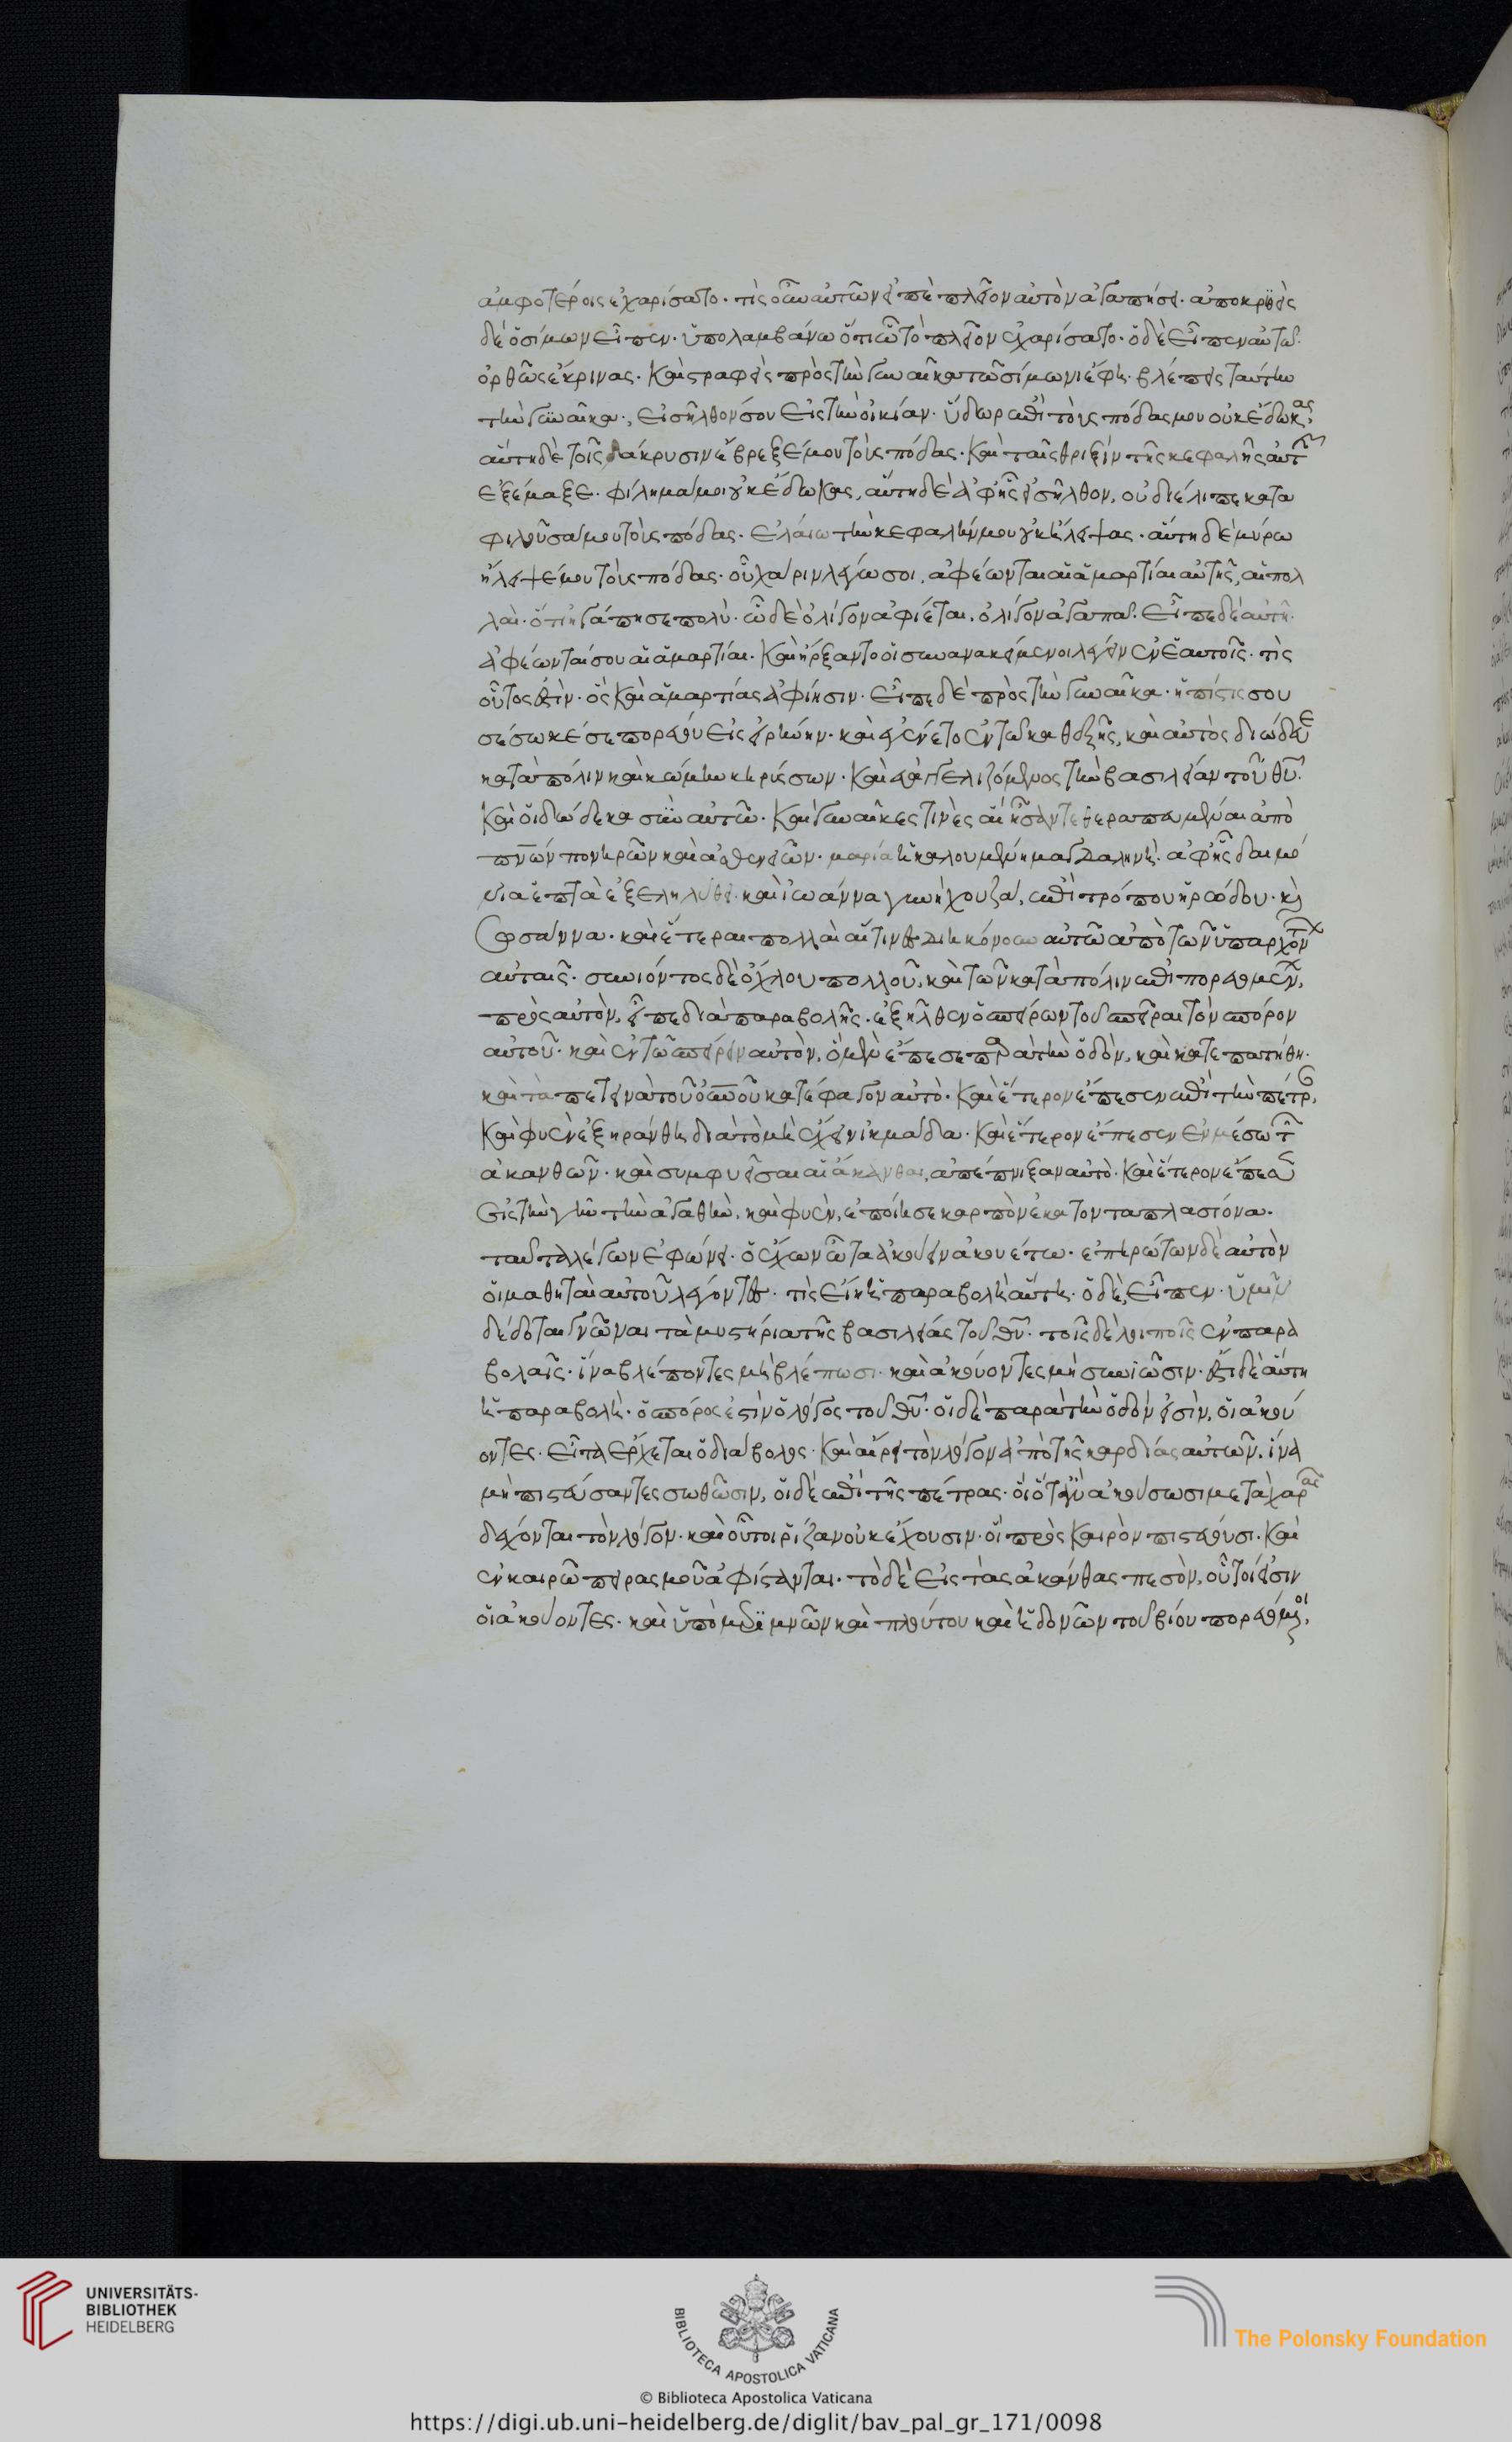 ἀμφοτέροις ἐχαρίσατο· τίς οὖν αὐτῶν εἰπὲ πλεῖον αὐτὸν ἀγαπήσει· ἀποκριθεὶς
δὲ ὁ σίμων εἶπεν· ὑπολαμβάνω ὅτι ὧ τὸ πλεῖον ἐχαρίσατο· ὁ δὲ εἶπεν αὐτῶ·
ὀρθῶς ἔκρινας· Καὶ στραφεὶς πρὸς τὴν γυναῖκα τῶ σίμωνι ἔφη· βλέπεις ταύτην
τὴν γυναῖκα·, εἰσῆλθον σου εἰς τὴν οἰκίαν· ὕδωρ ἐπὶ τοὺς πόδας μου οὐκ ἔδωκας,
αὕτη δὲ τοῖς δάκρυσιν ἔβρεξέ μου τοὺς πόδας· Καὶ ταῖς θριξὶν τῆς κεφαλῆς αὐτῆς
ἐξέμαξε· φίλημα μοι οὐκ ἔδωκας, αὕτη δὲ ἀφ' ἧς εἰσῆλθον, οὐ διέλιπε κατα
φιλοῦσα μου τοὺς πόδας· ἐλαίω τὴν κεφαλήν μου οὐκ ἤλειψας· αὕτη δὲ μύρω
ἤλειψέ μου τοὺς πόδας· οὗ χάριν λέγω σοι, ἀφέωνται αἱ ἁμαρτίαι αὐτῆς, αἱ πολ
λαὶ· ὅτι ἠγάπησε πολὺ· ὧ δὲ ὀλίγον ἀφίεται, ὀλίγον ἀγαπᾶ· Εἶπε δὲ αὐτῆ·
ἀφέωνταί σου αἱ ἁμαρτίαι· Καὶ ἤρξαντο οἱ συνανακείμενοι λέγειν ἐν ἑαυτοῖς· τίς
οὗτος ἐστὶν· ὃς καὶ ἁμαρτίας ἀφίησιν· Εἶπε δὲ πρὸς τὴν γυναῖκα· ἡ πίστις σου
σέσωκέ σε πορεύου εἰς εἰρήνην· καὶ ἐγένετο ἐν τῶ καθεξῆς, καὶ αὐτὸς διώδευε
κατὰ πόλιν καὶ κώμην κηρύσσων· Καὶ εὐαγγελιζόμενος τὴν βασιλείαν τοῦ θυ·
Καὶ οἱ δώδεκα σὺν αὐτῶ· Καὶ γυναῖκες τινὲς αἳ ἦσαν τεθεραπευμέναι ἀπὸ
πνων πονηρῶν καὶ ἀσθενειῶν· μαρία ἡ καλουμένη μαγδαληνὴ· ἀφ' ἧς δαιμό
νια ἑπτὰ ἐξεληλύθει· καὶ ἰωάννα γυνὴ χουζᾶ, ἐπιτρόπου ἡρώδου· κὶ
σωσάννα· καὶ ἕτεραι πολλαὶ αἵτινες διηκόνουν αὐτῶ ἀπὸ τῶν ὑπαρχόντων
αὐταῖς· συνιόντος δὲ ὄχλου πολλοῦ, καὶ τῶν κατὰ πόλιν ἐπιπορευομένων,
πρὸς αὐτὸν, εἶπε διὰ παραβολῆς· ἐξῆλθεν ὁ σπείρων τοῦ σπεῖραι τὸν σπόρον
αὐτοῦ· καὶ ἐν τῶ σπείρειν αὐτὸν, ὃ μὲν ἔπεσε παρὰ τὴν ὁδὸν, καὶ κατεπατήθη·
καὶ τὰ πετεινὰ τοῦ οὐνοῦ κατέφαγον αὐτὸ· Καὶ ἕτερον ἔπεσεν ἐπὶ τὴν πέτραν,
Καὶ φυὲν ἐξηράνθη διὰ τὸ μὴ ἔχειν ἰκμάδα· Καὶ ἕτερον ἔπεσεν ἐν μέσω τῶν
ἀκανθῶν· καὶ συμφυεῖσαι αἱ ἄκανθαι, ἀπέπνιξαν αὐτὸ· Καὶ ἕτερον ἔπεσεν
εἰς τὴν γῆν τὴν ἀγαθὴν, καὶ φυὲν, ἐποίησε καρπὸν ἑκατονταπλασίονα·
ταῦτα λέγων ἐφώνει· ὁ ἔχων ὦτα ἀκούειν ἀκουέτω· ἐπηρώτων δὲ αὐτὸν
οἱ μαθηταὶ αὐτοῦ λέγοντες· τίς εἴη ἡ παραβολὴ αὕτη· ὁ δὲ, εἶπεν· ὑμῖν
δέδοται γνῶναι τὰ μυστήρια τῆς βασιλείας τοῦ θυ· τοῖς δὲ λοιποῖς ἐν παρα
βολαῖς· ἵνα βλέποντες μὴ βλέπωσι· καὶ ἀκούοντες μὴ συνιῶσιν· ἔστι δὲ αὕτη
ἡ παραβολὴ· ὁ σπόρος ἐστὶν ὁ λόγος τοῦ θυ· οἱ δὲ παρὰ τὴν ὁδόν εἰσὶν, οἱ ἀκού
οντες· εἶτα ἔρχεται ὁ διάβολος· Καὶ αἴρει τὸν λόγον ἀπὸ τῆς καρδίας αὐτῶν, ἵνα
μὴ πιστεύσαντες σωθῶσιν, οἱ δὲ ἐπὶ τῆς πέτρας· οἳ ὅταν ἀκούσωσι μετὰ χαρᾶς
δέχονται τὸν λόγον· καὶ οὗτοι ῥίζαν οὐκ ἔχουσιν· οἳ πρὸς καιρὸν πιστεύουσι· Καὶ
ἐν καιρῶ πειρασμοῦ ἀφίστανται· τὸ δὲ εἰς τὰς ἀκάνθας πεσὸν, οὗτοί εἰσιν
οἱ ἀκούοντες· καὶ ὑπὸ μεριμνῶν καὶ πλούτου καὶ ἡδονῶν τοῦ βίου πορευόμενοι,
UNIVERSITÄTS-
BIBLIOTHEK
HEIDELBERG
BIBLIOTECA APOSTOLICA VATICANA
The Polonsky Foundation
© Biblioteca Apostolica Vaticana
https://digi.ub.uni-heidelberg.de/diglit/bav_pal_gr_171/0098